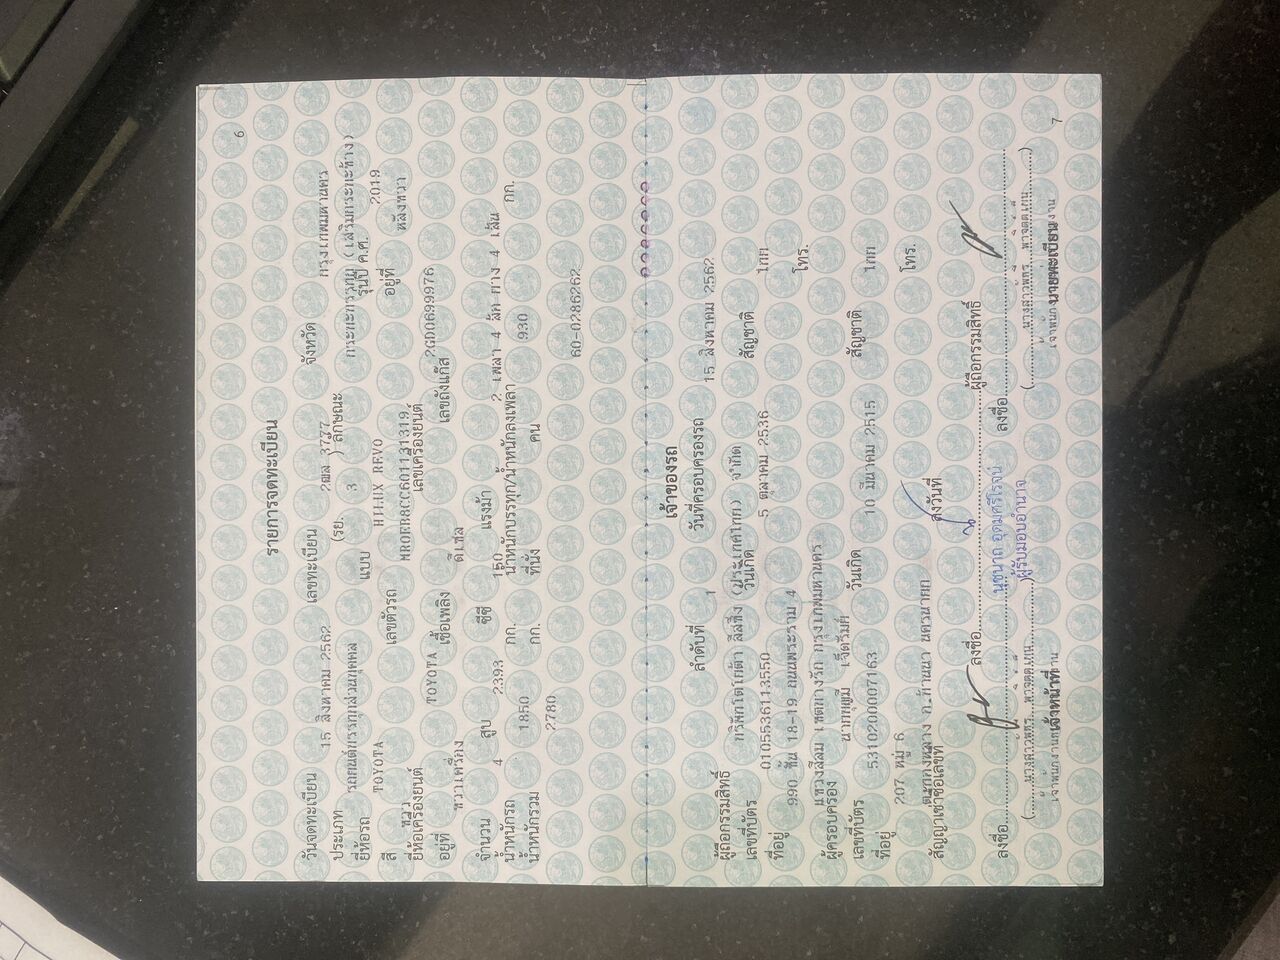 6
รายการจดทะเบียน
วันจดทะเบียน 15 สิงหาคม 2562 เลขทะเบียน 2ฒล 3777 จังหวัด กรุงเทพมหานคร
ประเภท รถยนต์บรรทุกส่วนบุคคล (รย. 3 ) ลักษณะ กระบะบรรทุก (เสริมกระบะข้าง)
ยี่ห้อรถ TOYOTA แบบ HILUX REVO รุ่นปี ค.ศ. 2019
สี ขาว เลขตัวรถ MR0EB8CC601131319 อยู่ที่ หลังขวา
ยี่ห้อเครื่องยนต์ TOYOTA เลขเครื่องยนต์ 2GD0699976
อยู่ที่ ขวาเครื่อง เชื้อเพลิง ดีเซล เลขถังแก๊ส
จำนวน 4 สูบ 2393 ซีซี 150 แรงม้า 2 เพลา 4 ล้อ ยาง 4 เส้น
น้ำหนักรถ 1850 กก. น้ำหนักบรรทุก/น้ำหนักลงเพลา 930 กก.
น้ำหนักรวม 2780 กก. ที่นั่ง คน
60-0286262
เจ้าของรถ
ลำดับที่ 1 วันที่ครอบครองรถ 15 สิงหาคม 2562
ผู้ถือกรรมสิทธิ์ บริษัทโตโยต้า ลีสซิ่ง (ประเทศไทย) จำกัด
เลขที่บัตร 0105536113550 วันเกิด 5 ตุลาคม 2536 สัญชาติ ไทย
ที่อยู่ 990 ชั้น 18-19 ถนนพระราม 4 โทร.
แขวงสีลม เขตบางรัก กรุงเทพมหานคร
ผู้ครอบครอง
เลขที่บัตร 5310200007163 วันเกิด 10 มีนาคม 2515 สัญชาติ ไทย
ที่อยู่ 207 หมู่ 6 โทร.
อ.บ้านนา นครนายก
สัญญาเช่าซื้อเลขที่ ลงวันที่
ลงชื่อ ลงชื่อ ผู้ถือกรรมสิทธิ์
นุชนาถ อุดมศรีโรจน์
ผู้รับมอบอำนาจ
ลงชื่อ
เจ้าหน้าที่
นายทะเบียน
7